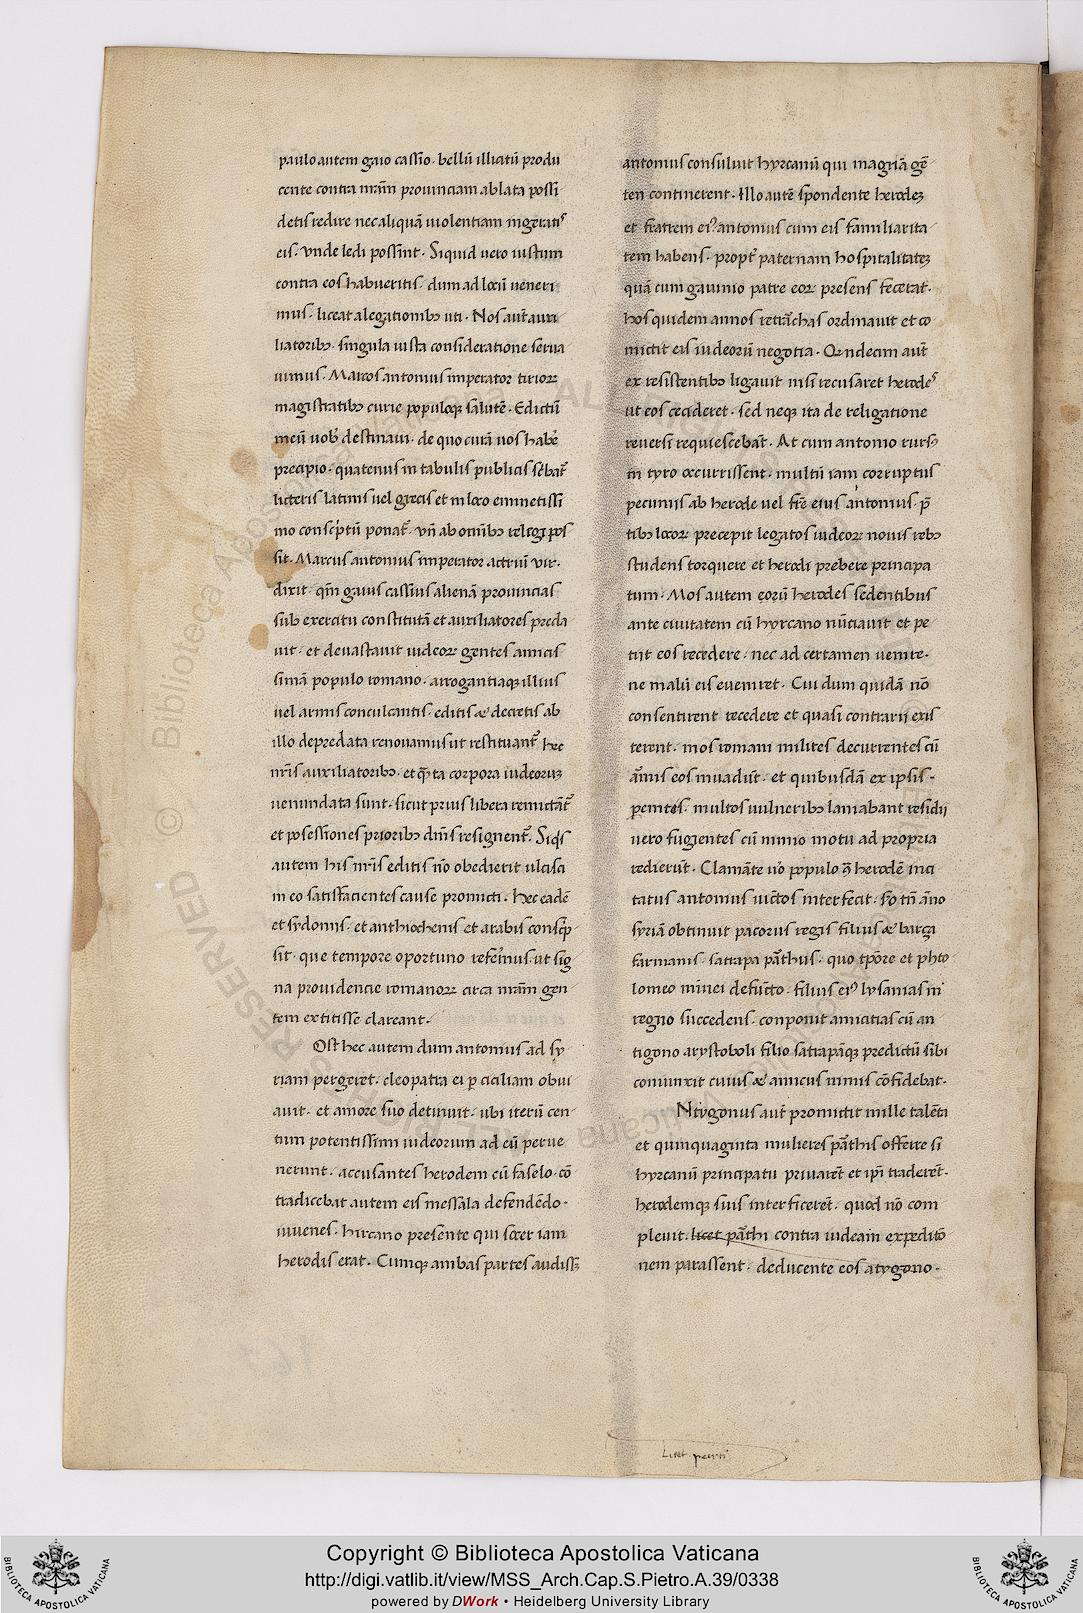 paulo autem gaio cassio. bellũ illicitũ produ
cente contra nr̃am prouinciam ablata possi
detis redire nec aliquã uiolentiam ingerati᷒
eis. vnde ledi possint. Siquid uero iustum
contra eos habueritis. dum ad locũ ueneri
mus. liceat alegationibꝫ uti. Nos aut̃ auxi
liatoribꝫ. singula iusta consideratione serua
uimus. Marcos antonius imperator tirioꝝ
magistratibꝫ curie populoqꝫ salutẽ. Edictũ
meũ uob̓ destinaui. de quo curã uos habe᷑
precipio. quatenus in tabulis publicis sc̓bat᷑
licteris latinis uel grecis et in loco eminetissi
mo conscp̓tũ ponat᷑. vñ ab om̃ibꝫ relegi pos
sit. Marcus antonius imperator actriũ vir.
dixit. qm̃ gaius cassius alienã prouincias
sub exercitu constitutã et auxiliatores preda
uit. et deuastauit iudeoꝝ gentes amicis
simã populo romano. arrogantiaqꝫ illius
uel armis conculcantis. editis & decretis ab
illo depredata renouamus ut restituant᷑ hec
nr̃is auxiliatoribꝫ. et q̃ ta corpora iudeoruꝫ
uenundata sunt. sicut prius libera remictãt᷑
et posessiones prioribꝫ dm̃s resignent᷑. Siq̓s
autem his nr̃is editis nõ obedierit ulcisci
in eo satisfacientes cause promicti. hec eadẽ
et sydoniis. et anthiochenis et arabis conscp̓
sit. que tempore oportuno referimus. ut sig
na prouidencie romanoꝝ circa nr̃am gen
tem extitisse clareant.
Ost hec autem dum antonius ad sy
riam pergeret. cleopatra ei ꝑ ciciliam obui
auit. et amore suo detinuit. ubi iterũ cen
tum potentissimi iudeorum ad eũ perue
nerunt. accusantes herodem cũ faselo. cõ
tradicebat autem eis messala defendẽdo.
iuuenes. hircano presente qui socer iam
herodis erat. Cumqꝫ ambas partes audissꝫ
antonius consuluit hyrcanũ qui magnã gẽ
tem continerent. Illo autẽ spondente herodeꝫ
et fratrem ei᷒ antonius cum eis familiarita
tem habens. propt̓ paternam hospitalitateꝫ
quã cum gauinio patre eoꝝ presens fecerat.
hos quidem annos tetrãchas ordinauit et co
mictit eis iudeorũ negotia. Qndecim aut̃
ex resistentibꝫ ligauit nisi recusaret herode᷒
ut eos cecideret. sed neqꝫ ita de religatione
reuersi requiescebãt. At cum antonio rurs᷒
in tyro occurrissent. multũ iam corruptus
pecuniis ab herode uel fr̃e eius antonius. p̃
tibꝫ locoꝝ precepit legatos iudeoꝝ nouis rebꝫ
studens torquere et herodi prebere principa
tum. Mos autem eorũ herodes sedentibus
ante ciuitatem cũ hyrcano nũciauit et pe
tiit eos recedere. nec ad certamen uenire.
ne malũ eis eueniret. Cui dum quidã nõ
consentirent recedere et quasi contrarii exis
terent. mos romani milites decurrentes cũ
ãmis eos inuadũt. et quibusdã ex ipsis
pemtes. multos uulneribꝫ laniabant residii
uero fugientes cũ nimio motu ad propria
redierũt. Clamãte u̓o populo ꝗ̃ herodẽ inci
tatus antonius uictos interfecit. so tñ ãno
syriã obtinuit pacorus regis filius & barça
farmanis. satrapa pãthus. quo tꝑore et phto
lomeo minei defũcto. filius ei᷒ lysanias in
regno succedens. conponit amicitias cũ an
tigono arystoboli filio satrapãqꝫ predictũ sibi
coniunxit cuius & amicus nimis cõfidebat.
Ntygonus aut̃ promictit mille talẽta
et quinquaginta mulieres pãthis offerre si
hyrcanũ principatu priuarẽt et ip̃i traderẽt.
herodemqꝫ suis interficerẽt. quod nõ com
pleuit. licet pãthi contra iudeam expeditõ
nem parassent. deducente eos atygono.
Licet parti
Copyright © Biblioteca Apostolica Vaticana
http://digi.vatlib.it/view/MSS_Arch.Cap.S.Pietro.A.39/0338
powered by DWork • Heidelberg University Library
BIBLIOTECA APOSTOLICA VATICANA
BIBLIOTECA APOSTOLICA VATICANA